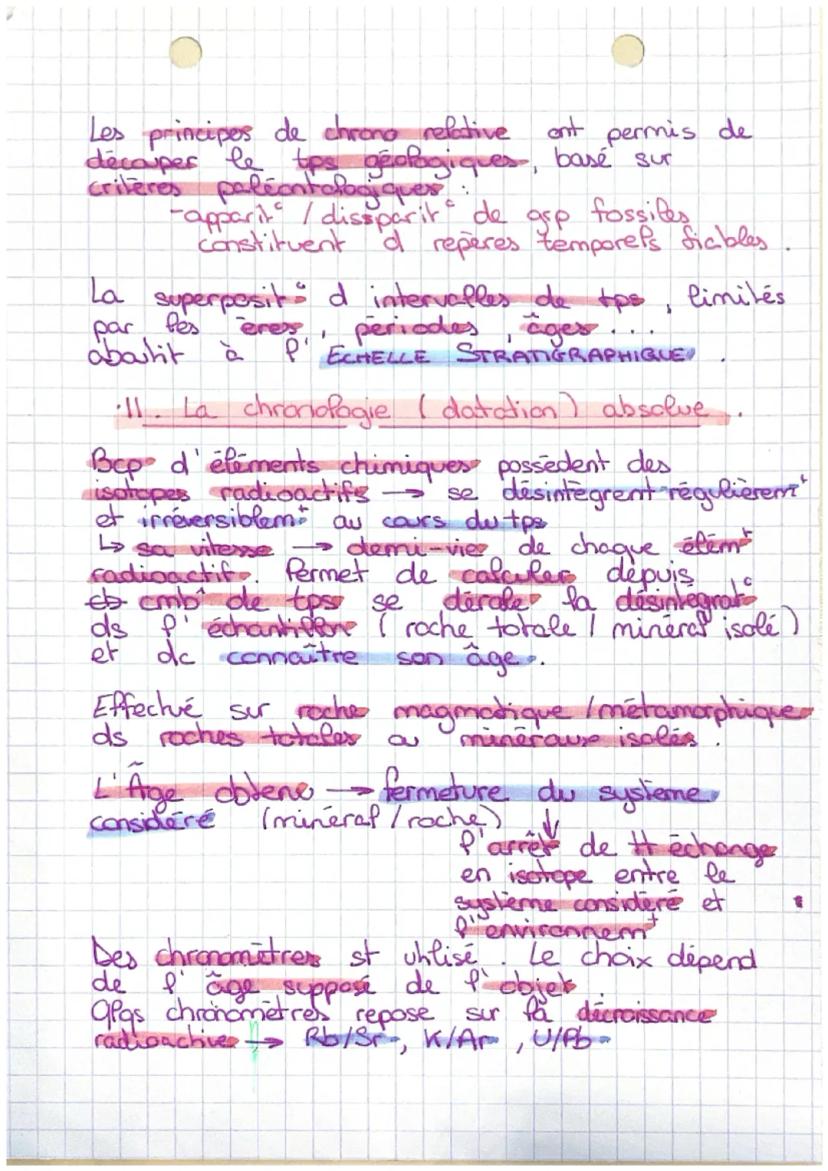 Les principes de chrono relative ont permis de
découper le tps géologiques, basé sur
critères paléontologiques :
- apparit° / dissparit° de gsp fossiles
constituent d repères temporels fiables.
La superposit° d intervalles de tps, limités
par les ères, périodes, âges...
aboutit à l'ECHELLE STRATIGRAPHIQUE.
II. La chronologie (datation) absolue.
Bcp d'éléments chimiques possèdent des
isotopes radioactifs → se désintègrent régulièremt
et irréversiblemt au cours du tps
↳ sa vitesse → demi-vie de chaque élémt
radioactif. Permet de calculer depuis
cmb de tps se déroule la désintégrat°
ds l'échantillon (roche totale / minéral isolé)
et dc connaître son âge.
Effectué sur roche magmatique / métamorphique
ds roches totales ou minéraux isolés.
L'Âge obtenu → fermeture du système
considéré (minéral / roche) ↓
l'arrêt de tt échange
en isotope entre le
système considéré et
l'environnemt
Des chronomètres st utilisé. Le choix dépend
de l'âge supposé de l'objet
Qlqs chronomètres repose sur la décroissance
radioactive → Rb/Sr, K/Ar, U/Pb